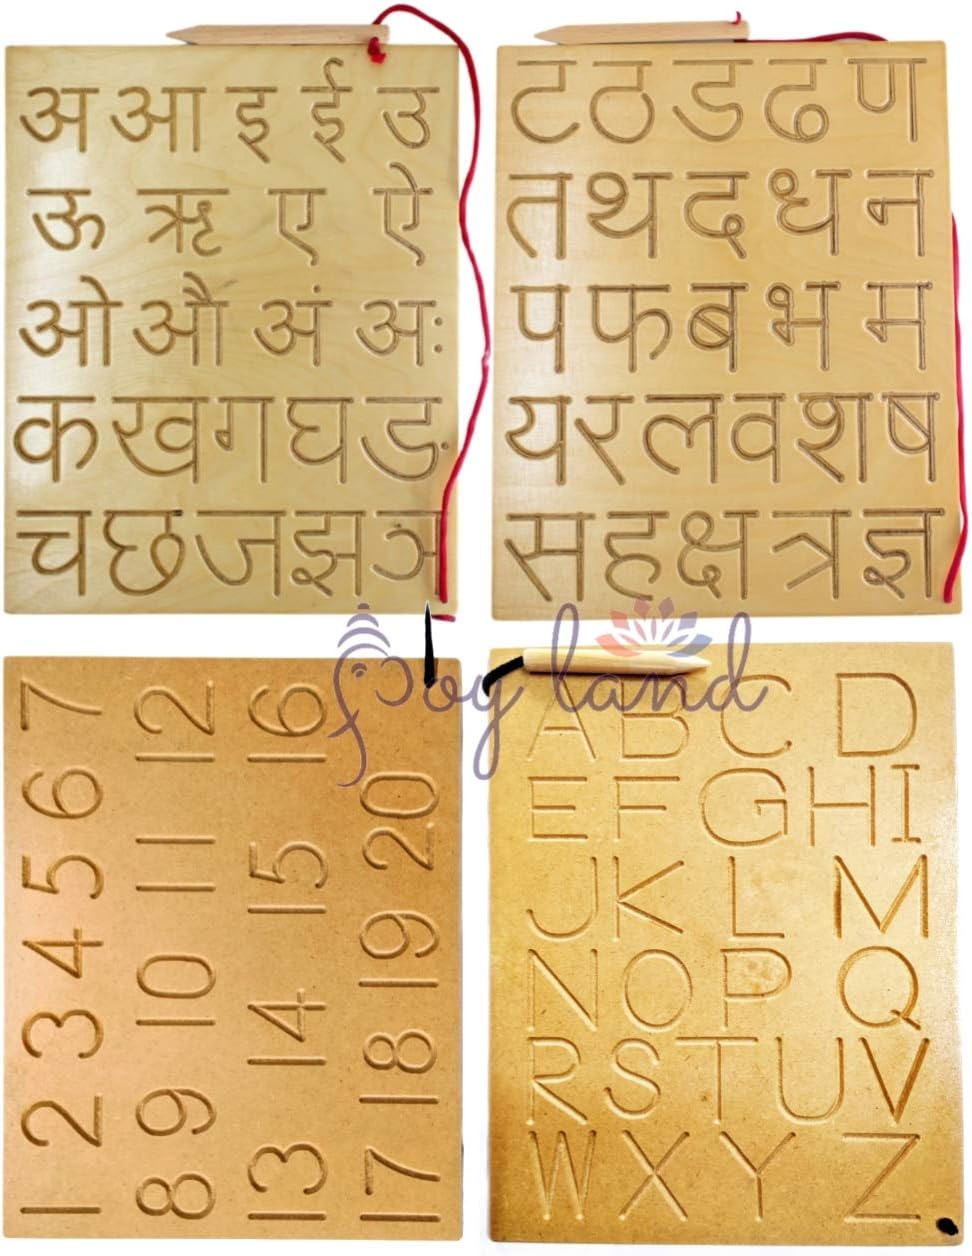 अ आ इ ई उ
ऊ ऋ ए ऐ
ओ औ अं अः
क ख ग घ ङ
च छ ज झ ञ
ट ठ ड ढ ण
त थ द ध न
प फ ब भ म
य र ल व श ष
स ह क्ष त्र ज्ञ
1 2 3 4 5 6 7
8 9 10 11 12
13 14 15 16
17 18 19 20
Joy land
A B C D
E F G H I
J K L M
N O P Q
R S T U V
W X Y Z